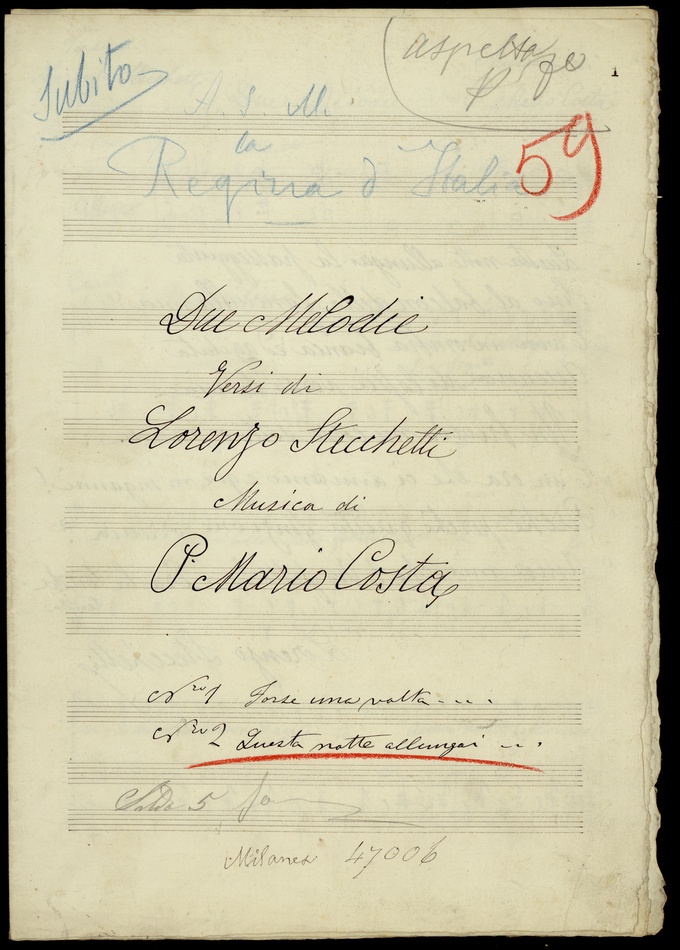 Subito
aspetta
1
59
A. S. M.
la
Regina d'Italia
Due Melodie
Versi di
Lorenzo Stecchetti
Musica di
P. Mario Costa
Nro 1 Forse una volta....
Nro 2 Questa notte allungai ...
5
Milanes 47006